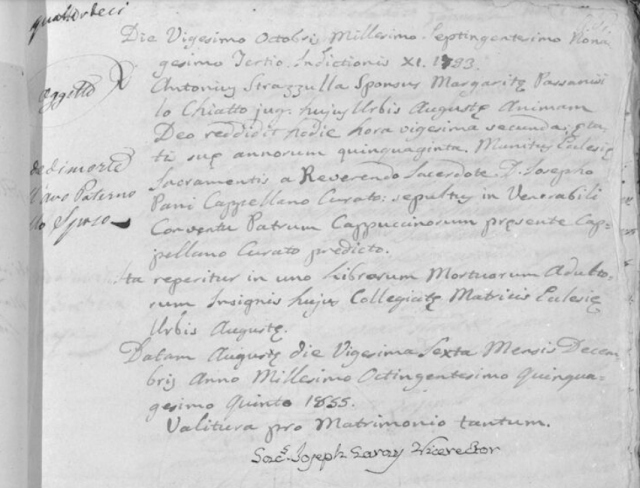 quattordeci
Die Vigesimo Octobris Millesimo Septingentesimo Nona-
gesimo Tertio. Indictionis XI. 1793.
Oggetto
Antonius Strazzulla Sponsus Margaritę Passanisi
lo Chiatto jug: hujus Urbis Augustę Animam
Deo reddidit hodie hora vigesima secunda: ęta-
ti suę annorum quinquaginta. Munitus Eclesię
de di morte
Sacramentis a Reverendo Sacerdote D. Josepho
Paterno
Pani Cappellano Curato: sepultus in Venerabili
lo Sposo
Conventu Patrum Cappuccinorum pręsente Cap-
pellano Curato predicto.
Ita reperitur in uno librorum Mortuorum Adulto-
rum Insignis hujus Collegiatę Matricis Eclesię
Urbis Augustę.
Datum Augustę die Vigesima Sexta Mensis Decem-
bris Anno Millesimo Octingentesimo Quinqua-
gesimo Quinto 1855.
Valitura pro Matrimonio tantum.
Sac: Joseph Saray Vicerector